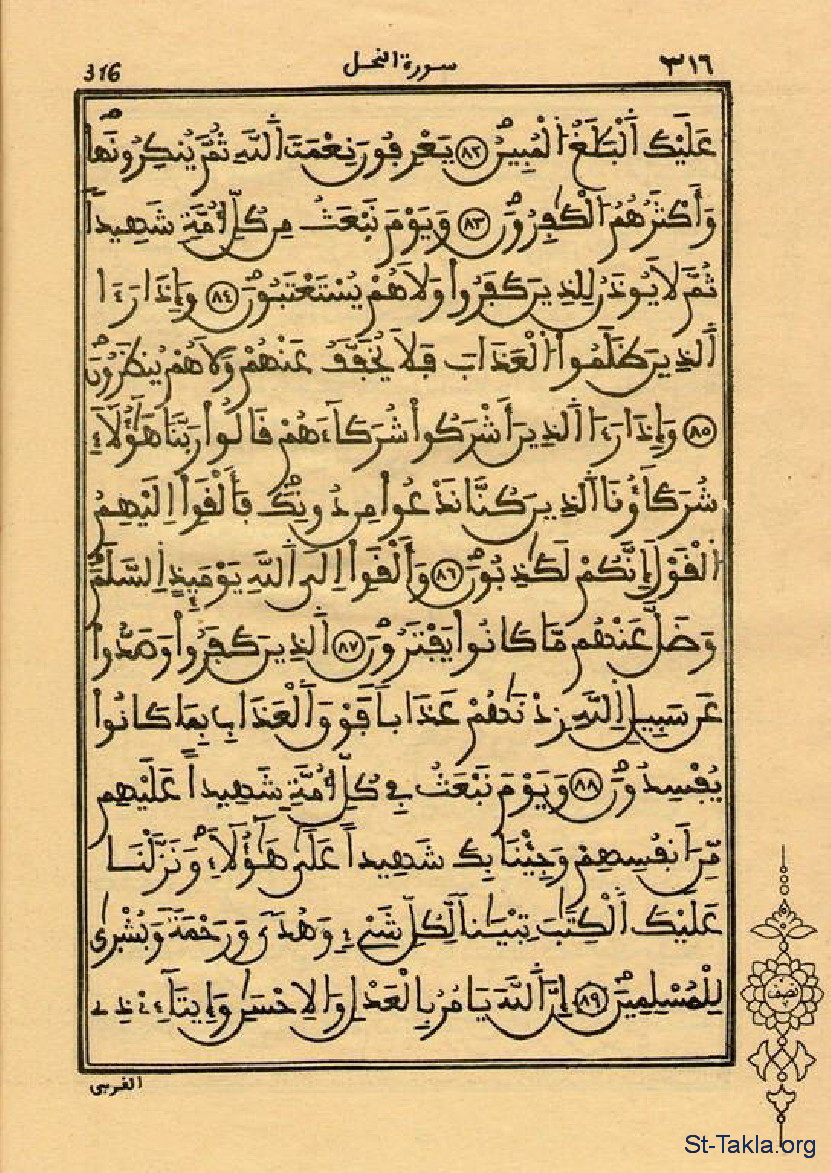 316 سورة النحل ٣١٦
عَلَيْكَ اَ۬لْبَلَٰغُ اُ۬لْمُبِينُۖ ٨٢ يَعْرِفُونَ نِعْمَتَ اَ۬للَّهِ ثُمَّ يُنكِرُونَهَاۖ
وَأَكْثَرُهُمُ اُ۬لْكَٰفِرُونَۖ ٨٣ وَيَوْمَ نَبْعَثُ مِن كُلِّ أُمَّةٖ شَهِيداٗ
ثُمَّ لَا يُوذَنُ لِلذِينَ كَفَرُواْ وَلَا هُمْ يُسْتَعْتَبُونَۖ ٨٤ وَإِذَا رَءَا
اَ۬لذِينَ ظَلَمُواْ اُ۬لْعَذَابَ فَلَا يُخَفَّفُ عَنْهُمْ وَلَا هُمْ يُنظَرُونَۖ
٨٥ وَإِذَا رَءَا اَ۬لذِينَ أَشْرَكُواْ شُرَكَآءَهُمْ قَالُواْ رَبَّنَا هَٰٓؤُلَآءِ
شُرَكَآؤُنَا اَ۬لذِينَ كُنَّا نَدْعُواْ مِن دُونِكَۖ فَأَلْقَوِاْ اِلَيْهِمُ
اُ۬لْقَوْلَ إِنَّكُمْ لَكَٰذِبُونَۖ ٨٦ وَأَلْقَوِاْ اِلَى اَ۬للَّهِ يَوْمَئِذٍ اِ۬لسَّلَمَۖ
وَضَلَّ عَنْهُم مَّا كَانُواْ يَفْتَرُونَۖ ٨٧ اَ۬لذِينَ كَفَرُواْ وَصَدُّواْ
عَن سَبِيلِ اِ۬للَّهِ زِدْنَٰهُمْ عَذَاباٗ فَوْقَ اَ۬لْعَذَابِ بِمَا كَانُواْ
يُفْسِدُونَۖ ٨٨ وَيَوْمَ نَبْعَثُ فِے كُلِّ أُمَّةٖ شَهِيداً عَلَيْهِم
مِّنَ اَنفُسِهِمْ وَجِئْنَا بِكَ شَهِيداً عَلَىٰ هَٰٓؤُلَآءِۖ وَنَزَّلْنَا
عَلَيْكَ اَ۬لْكِتَٰبَ تِبْيَٰناٗ لِّكُلِّ شَےْءٖ وَهُدىٗ وَرَحْمَةٗ وَبُشْر۪ىٰ
لِلْمُسْلِمِينَۖ ٨٩ إِنَّ اَ۬للَّهَ يَامُرُ بِالْعَدْلِ وَالِاحْسَٰنِ وَإِيتَآءِےْ ذِے
نصف
القربى
St-Takla.org